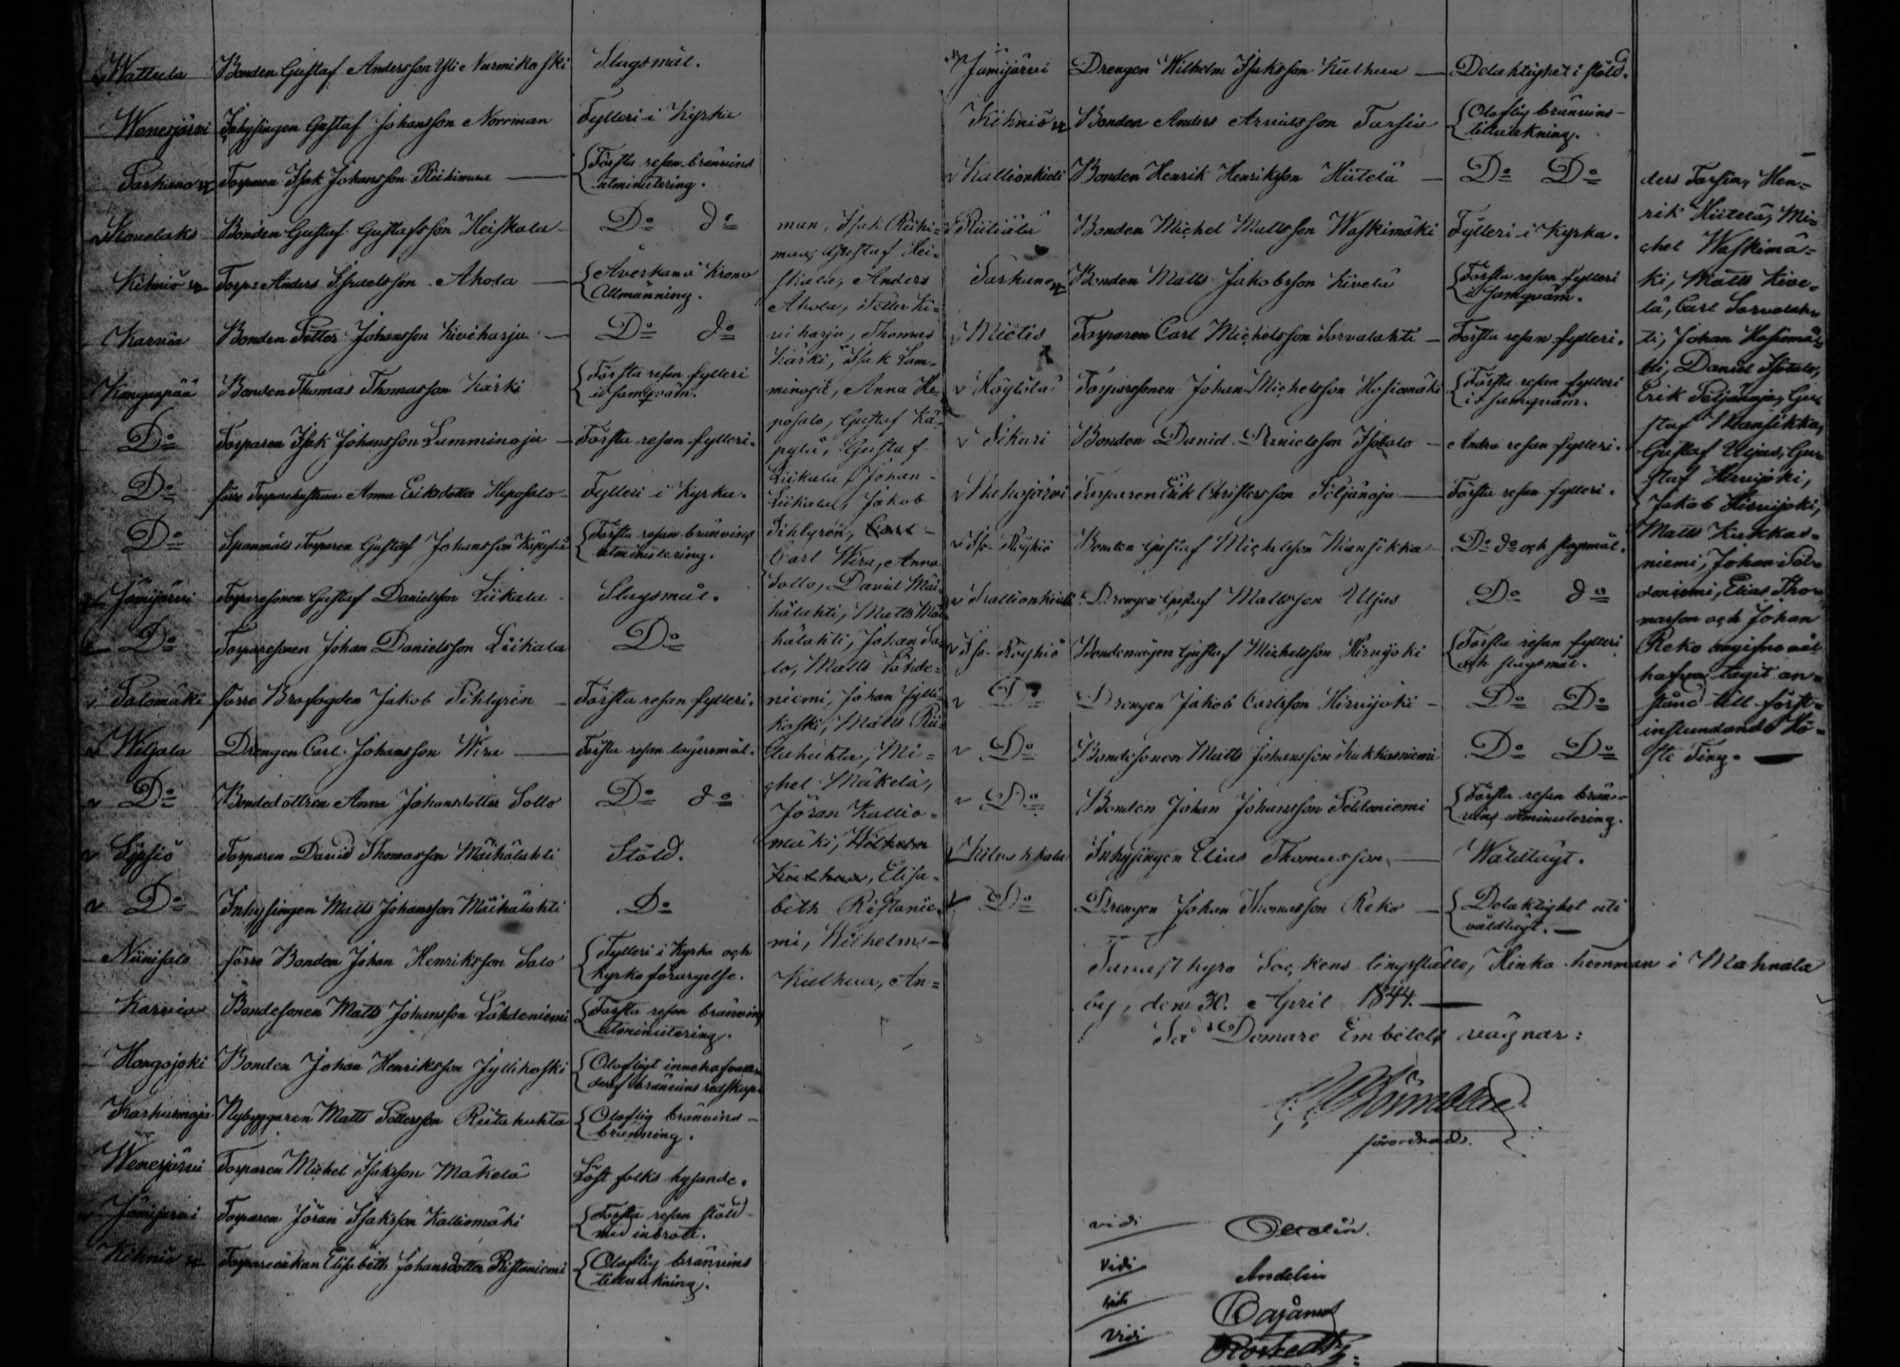 Wattula Bonden Gustaf Andersson Yli Nurmikoski Slagsmål.
Wenesjärvi Inhysingen Gustaf Johansson Norrman Fylleri i Kyrka
Parkano Torparen Isak Johansson Riihimaa {Första resan bränvins
utminutering.
Bonden Gustaf Gustafsson Heiskala Do do
Kihniö Torp: Anders Israelsson Ahola {Åverkan å Krono
Allmänning.
Karvia Bonden Petter Johansson Kiviharju Do do
Kangenpää Bonden Thomas Thomasson Karki {Första resan fylleri
i samqväm.
Do Torparen Isak Johansson Lamminoja Första resan fylleri.
Do förre Torparehustrun Anna Eriksdotter Heposalo Fylleri i Kyrka.
Do Spanmåls Torparen Gustaf Johansson Käpylä {Första resan bränvins
utminutering.
Jämijärvi Torparesonen Gustaf Danielsson Liikala Slagsmål.
Do Torparesonen Johan Danielsson Liikala Do
Palomäki förre Brofogden Jakob Sihlgrén Första resan fylleri.
Weljala Drengen Carl Johansson Wira Första resan lägersmål.
Do Bondedottren Anna Johansdotter Sollo Do do
Sypsiö Torparen David Thomasson Maihälahti Stöld.
Do Inhysingen Matts Johansson Maihälahti Do
Niinisalo förre Bonden Johan Henriksson Salo {Fylleri i Kyrka och
Kyrko förargelse.
Karvia Bondesonen Matts Johansson Lähdeniemi {Första resan bränvins
utminutering.
Hongojoki Bonden Johan Henriksson Jyllikoski {Olofligt innehafvande
af bränvins redskap.
Karhunoja Nybyggaren Matts Pettersson Riitahuhta {Oloflig bränvins-
bränning.
Wenesjärvi Torparen Michel Isaksson Mäkelä Löst folks hysande.
Jämijärvi Torparen Jöran Isaksson Kalliomäki {Första resan stöld
med inbrott.
Kihniö Torpareenkan Elisabeth Johansdotter Ristaniemi {Oloflig bränvins
tillverkning.
man, Isak Riihi-
maa, Gustaf Hei-
skala, Anders
Ahola, Petter Ki-
viharju, Thomas
Karki, Isak Lam-
minoja, Anna He-
posalo, Gustaf Kä-
pylä, Gustaf
Liikala, Johan
Liikala, Jakob
Sihlgrén, Carl
Carl Wira, Anna
Sollo, David Mai-
hälahti, Matts Mai-
hälahti, Johan Sa-
lo, Matts Lähde-
niemi, Johan Jylli-
koski, Matts Rii-
tahuhta, Mi-
chel Mäkelä,
Jöran Kallio-
mäki, Wilhelm
Kulhua, Elisa-
beth Ristanie-
mi, Wilhelm
Kulhua, An-
Jämijärvi Drengen Wilhelm Isaksson Kulhua Delaktighet i stöld.
Kihniö Bonden Anders Arvidsson Tarsia {Oloflig bränvins-
tillverkning.
Kallionkieli Bonden Henrik Henriksson Hiitelä Do Do
Riitiälä Bonden Michel Mattsson Waskimäki Fylleri i Kyrka.
Parkano Bonden Matts Jakobsson Kivelä {Första resan fylleri
i samqväm.
Miettis Torparen Carl Michelsson Sarvalahti Första resan fylleri.
Röyhiö Torparesonen Johan Michelsson Hosiamäki {Första resan fylleri
i samqväm.
Sikuri Bonden Daniel Danielsson Isotalo Andra resan fylleri.
Mahajärvi Torparen Erik Christersson Siljänoja Första resan fylleri.
Iso Röyhiö Bonden Gustaf Michelsson Mansikka Do do och slagsmål.
Kallionkieli Drengen Gustaf Mattsson Uljas Do do
Iso Röyhiö Bondemågen Gustaf Michelsson Hirvijoki {Första resan fylleri
och slagsmål.
Do Drengen Jakob Carlsson Hirvijoki Do Do
Do Bondesonen Matts Johansson Kukkasniemi Do Do
Do Bonden Johan Johansson Peldoniemi {Första resan brän-
vins utminutering.
Inhysingen Elias Thomasson Wåldtägt.
Do Drengen Johan Thomasson Reko {Delaktighet uti
våldtägt.
ders Tarsia, Hen-
rik Hiitelä, Mi-
chel Waskimä-
ki, Matts Kive-
lä, Carl Sarvalah-
ti, Johan Hosiamä-
ki, Daniel Isotalo,
Erik Siljänoja, Gu-
staf Mansikka,
Gustaf Uljas, Gu-
staf Hirvijoki,
Jakob Hirvijoki,
Matts Kukkas-
niemi, Johan Pel-
doniemi, Elias Tho-
masson och Johan
Reko angifne mål
hafva tagit an-
stånd till först-
instundande Hö-
ste Ting.
Tavastkyro Sockens tingsställe, Kinka hemman i Mahnala
by, den 30. April 1844.
På Domare Embetets vägnar:
förordnad.
vidi
vidi Andelin
vidi Cajanus
vidi